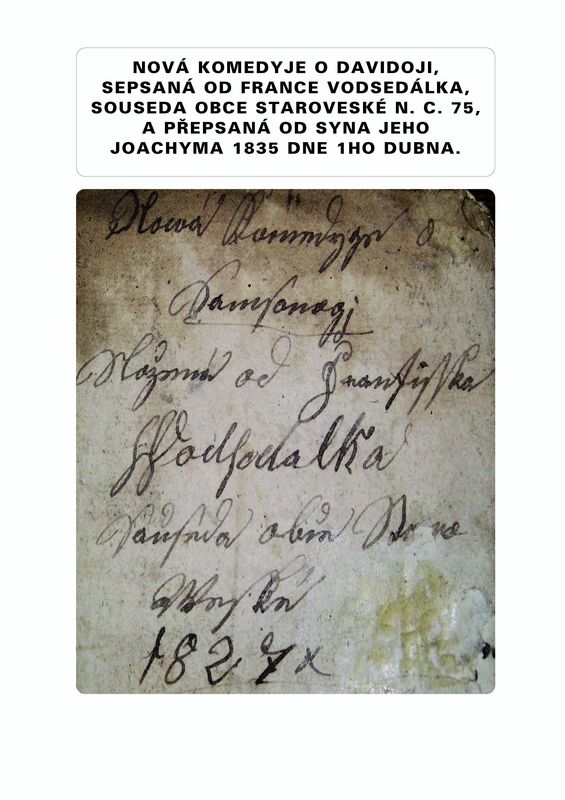 NOVÁ KOMEDYJE O DAVIDOJI,
SEPSANÁ OD FRANCE VODSEDÁLKA,
SOUSEDA OBCE STAROVESKÉ N. C. 75,
A PŘEPSANÁ OD SYNA JEHO
JOACHYMA 1835 DNE 1HO DUBNA.
Nowá Komedyge o
Samsonogj
Složená od Frantisska
Wodsedalka
Sauseda obce Staro
Weské
1827